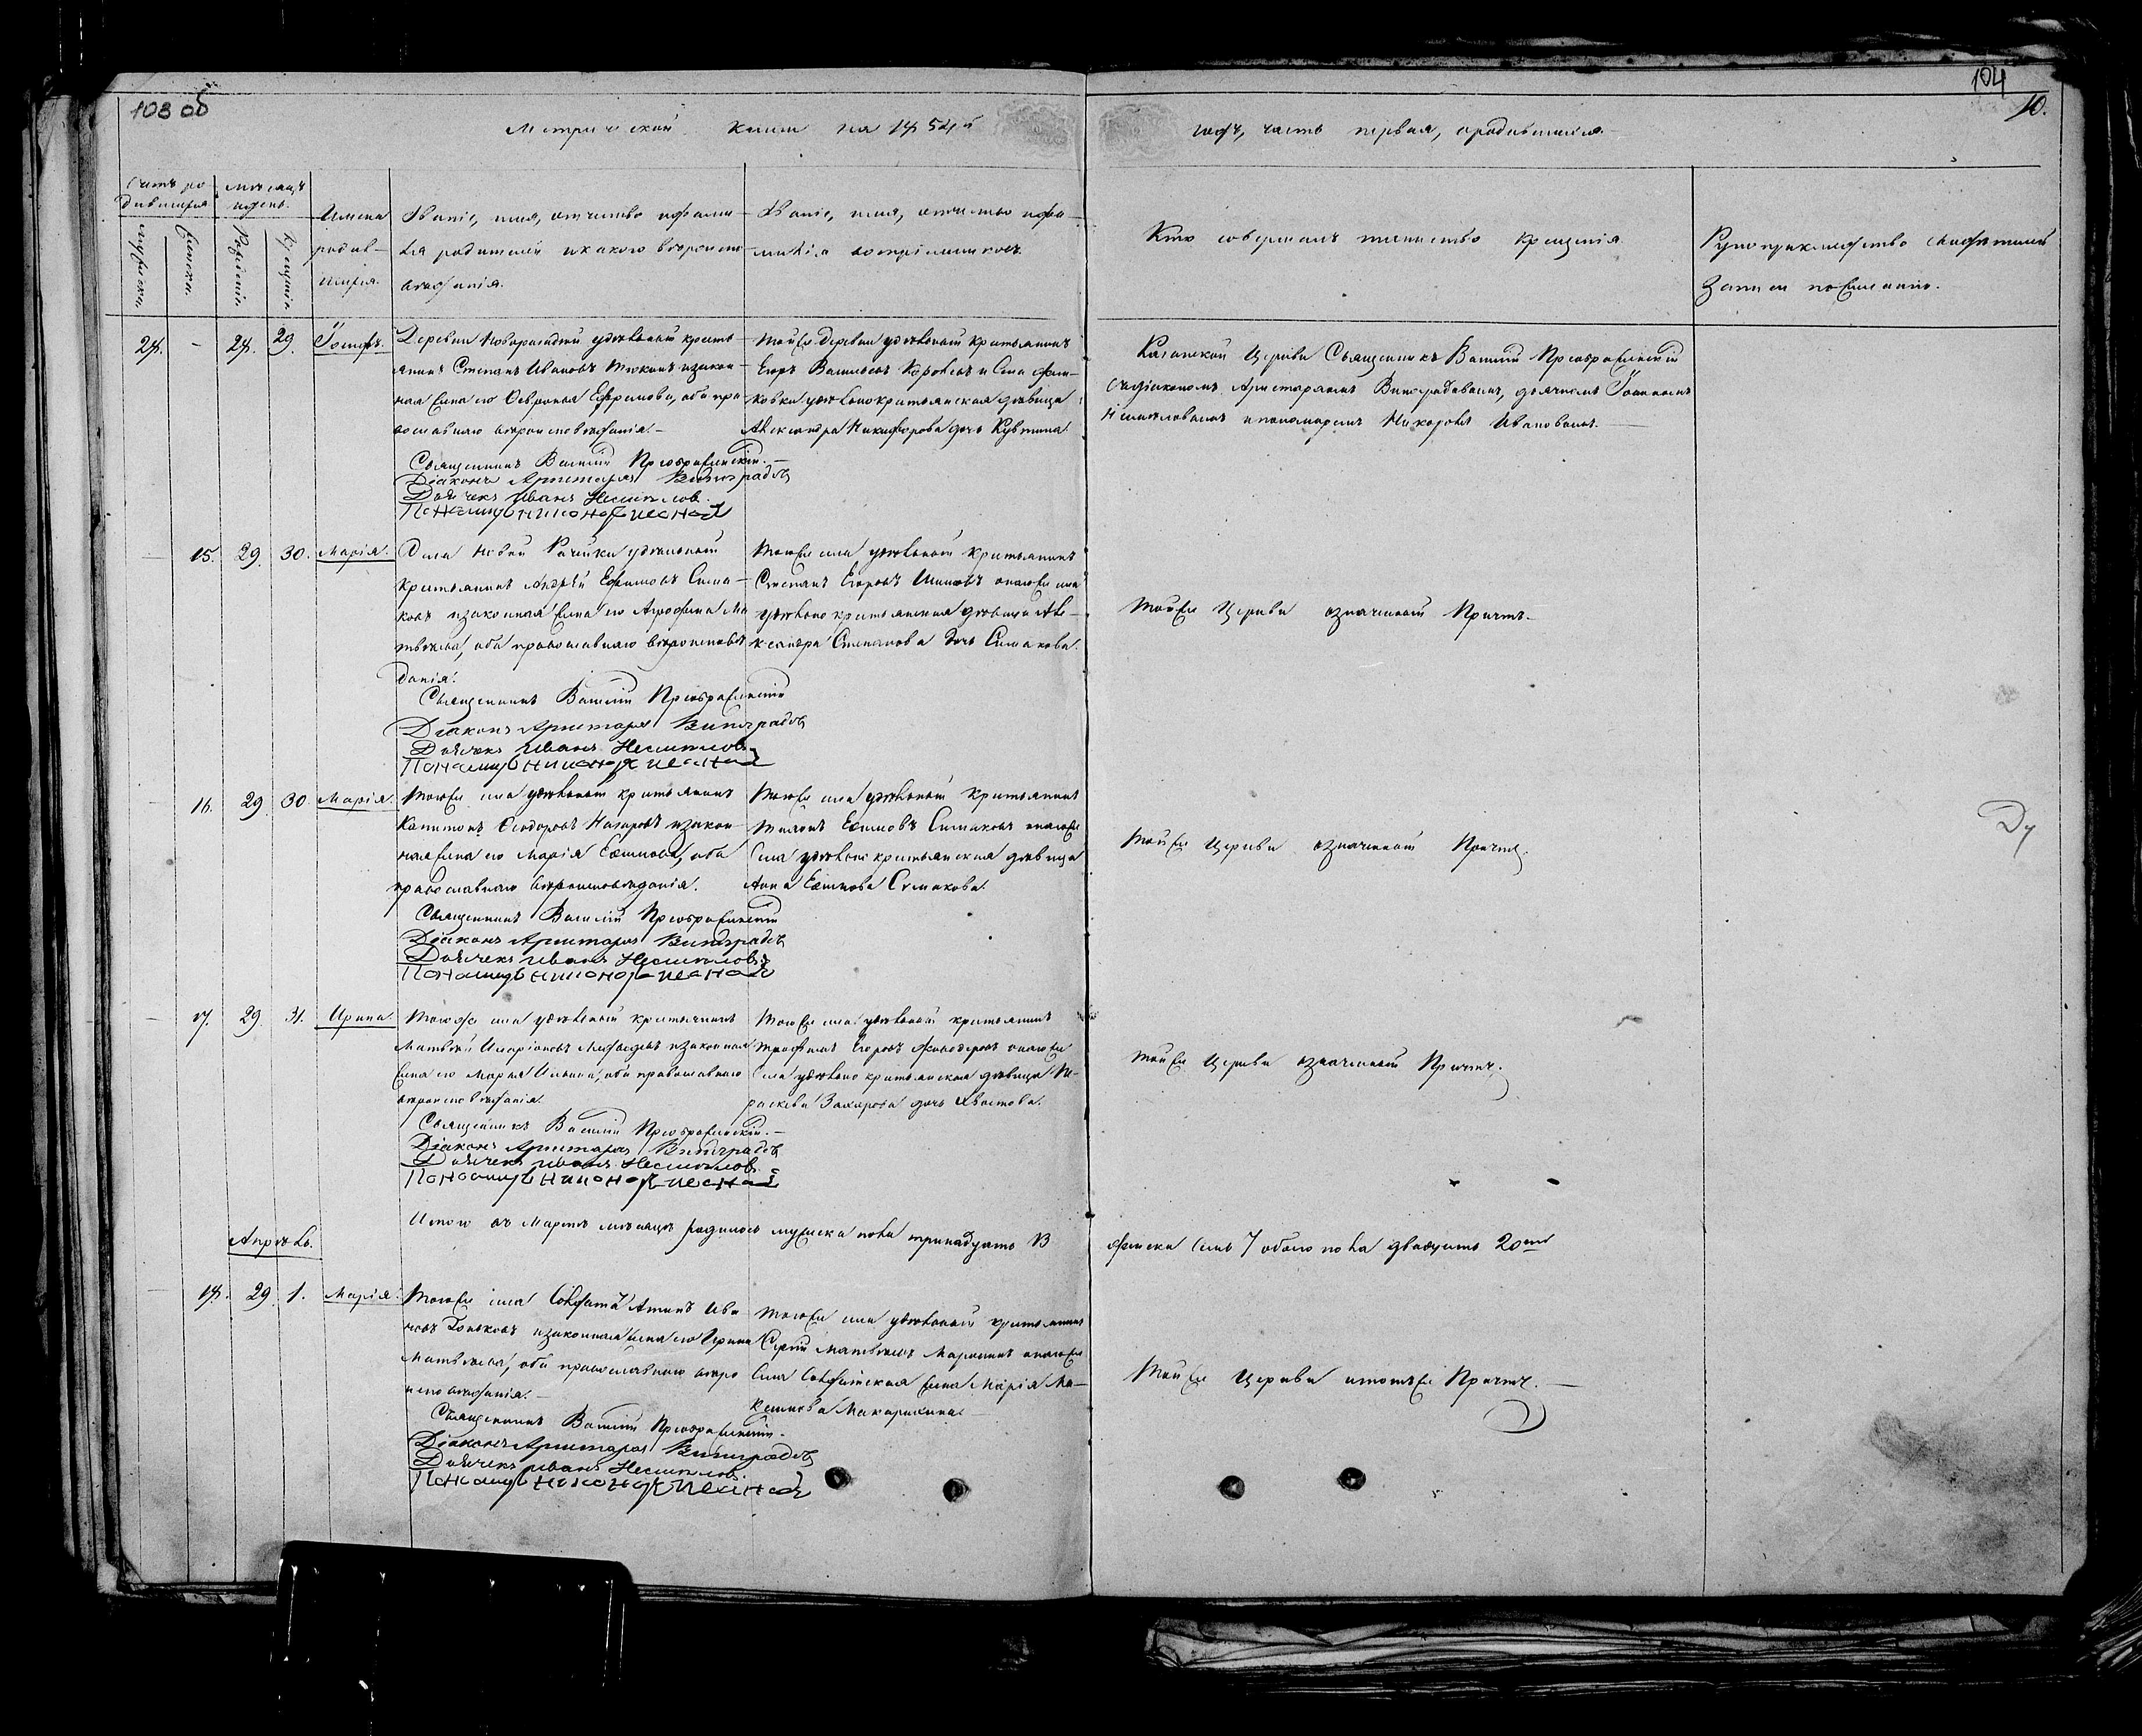 103 об
104
10.
Метрической книги на 1854й
годъ, часть первая, о родившихся.
Счетъ ро-
дившихся
мѣсяцъ
и день.
Мужеска.
Женска.
Рожденія.
Крещенія.
Имена
родив-
шихся.
Званіе, имя, отчество и фами-
лія родителей и какого вѣроиспо
вѣданія.
Званіе, имя, отчество и фа-
милія воспріемниковъ.
Кто совершалъ таинство крещенія.
Рукоприкладство свидѣтелей
записи по желанію.
28. - 28. 29. Іосифъ.
Деревни удѣльный кресть
янинъ Степанъ Ивановъ и закон-
ная жена его Ефремова, оба пра
вославнаго вѣроисповѣданія.-
Священникъ Василій Преображенскій.-
Діаконъ Аристархъ Виноградовъ
Дьячекъ Иванъ Несмѣловъ
Понамарь
Той же деревни удѣльный крестьянинъ
Егоръ Васильевъ и села
удѣльнокрестьянская дѣвица
Александра Никифорова дочь
Казанской Церкви Священникъ Василій Преображенскій
съ діакономъ Аристархомъ Виноградовымъ, дьячкомъ Іоанномъ
Несмѣловымъ и пономаремъ Ивановымъ.
- 15. 29. 30. Марія.
Села Новой Рачейки удѣльный
крестьянинъ Андрей Ефимовъ Сима-
ковъ и законная жена его Агрофена Ма
твѣева, оба православнаго вѣроисповѣ
данія.
Священникъ Василій Преображенскій
Діаконъ Аристархъ Виноградовъ
Дьячекъ Иванъ Несмѣловъ
Понамарь
Того же села удѣльный крестьянинъ
Степанъ Егоровъ и того же села
удѣльнокрестьянская дѣвица Але-
ксандра Степанова дочь Симакова.
Той же Церкви означенный Причтъ.
- 16. 29 30 Марія.
Того же села удѣльный крестьянинъ
Капитонъ Ѳеодоровъ Назаровъ и закон-
ная жена его Марія Ефимова, оба
православнаго вѣроисповѣданія.
Священникъ Василій Преображенскій
Діаконъ Аристархъ Виноградовъ
Дьячекъ Иванъ Несмѣловъ
Понамарь
Того же села удѣльный крестьянинъ
Ефимовъ Симаковъ и того же
села удѣльнокрестьянская дѣвица
Анна Ефимова Симакова.
Той же Церкви означенный Причтъ.
- 17. 29. 31. Ирина.
Того же села удѣльный крестьянинъ
Матвѣй Иларіоновъ Медвѣдевъ и законная
жена его Марья Ильина, оба православнаго
вѣроисповѣданія.
Священникъ Василій Преображенскій.-
Діаконъ Аристархъ Виноградовъ
Дьячекъ Иванъ Несмѣловъ
Понамарь
Того же села удѣльный крестьянинъ
Трофимъ Егоровъ и того же
села удѣльнокрестьянская дѣвица Па-
раскева Захарова дочь Хвостова.
Той же Церкви означенный Причтъ.
Итого въ Мартѣ мѣсяцѣ родилось мужеска пола тринадцать 13
женска семь 7 обоего пола двадцать 20ть
Апрѣль.
18. 29 1. Марія.
Того же села Солдатъ Ива
новъ и законная жена его Ирина
Матвѣева, оба православнаго вѣро
исповѣданія.-
Священникъ Василій Преображенскій.
Діаконъ Аристархъ Виноградовъ
Дьячекъ Иванъ Несмѣловъ
Понамарь
Того же села удѣльный крестьянинъ
Сергѣй Матвѣевъ и того же
села Солдатская жена Марія Ма-
ксимова
Той же Церкви и тотъ же Причтъ.-